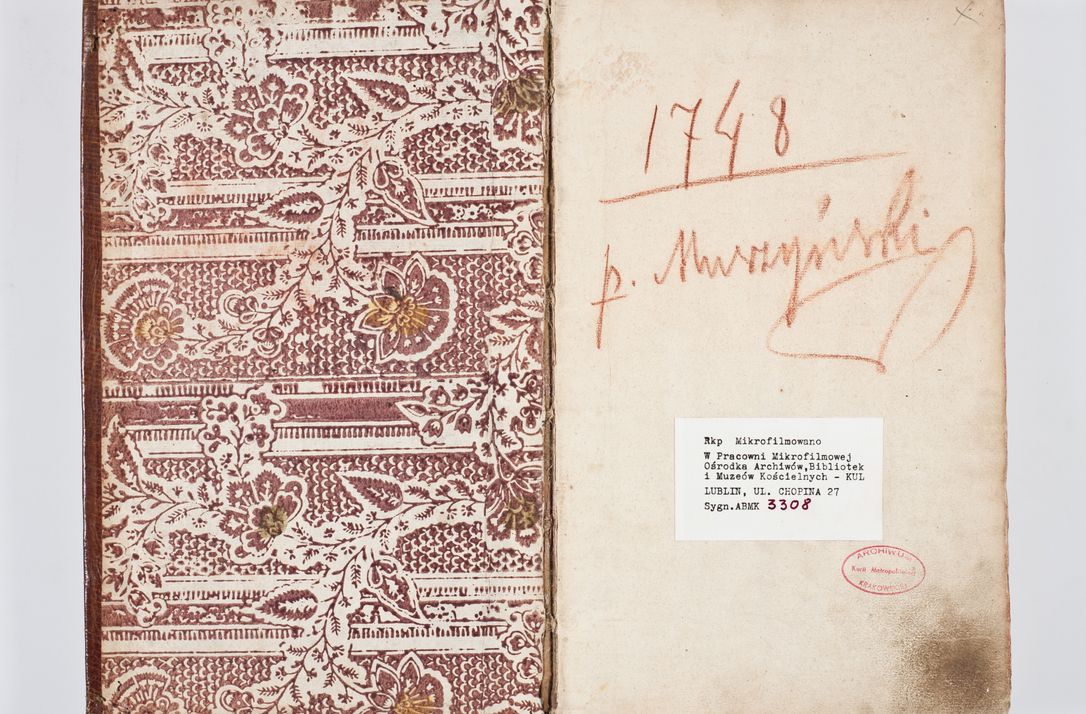 1748
p. Muszyński
Rkp Mikrofilmowano
W Pracowni Mikrofilmowej
Ośrodka Archiwów,Bibliotek
i Muzeów Kościelnych - KUL
LUBLIN, UL. CHOPINA 27
Sygn.ABMK 3308
ARCHIWUM
Kurii Metropolitalnej
KRAKOWSKIEJ